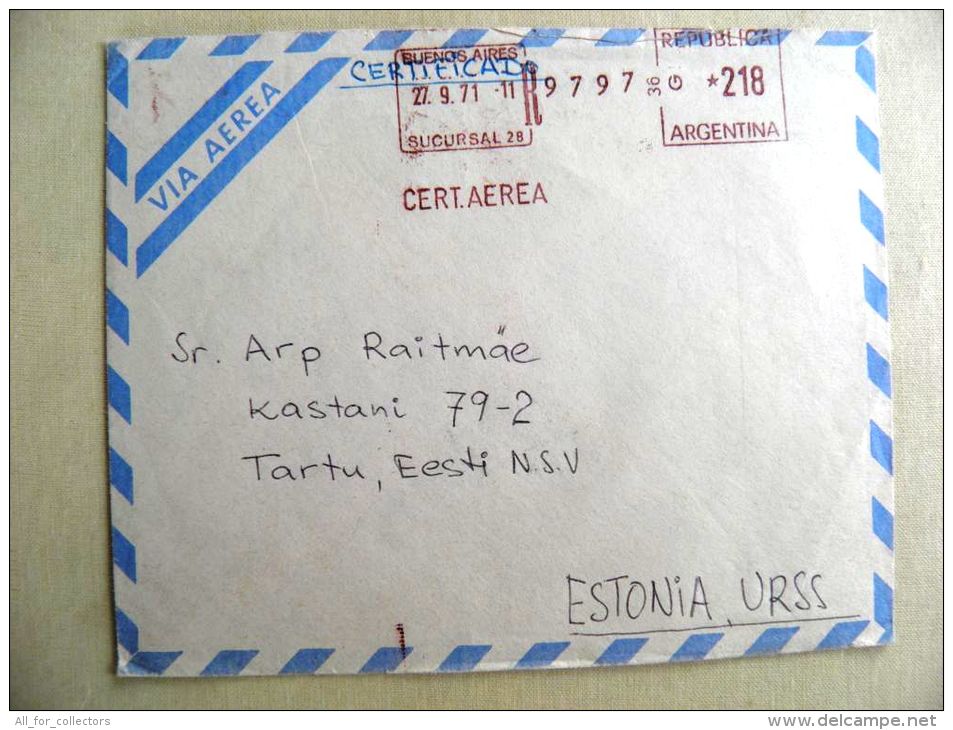 VIA AEREA
CERTIFICADO
BUENOS AIRES
27. 9. 71 -11
SUCURSAL 28
R 9797
36
G
REPUBLICA
*218
ARGENTINA
CERT. AEREA
Sr. Arp Raitmäe
Kastani 79-2
Tartu, Eesti N.S.V
ESTONIA, URSS
All_for_collectors
www.delcampe.net